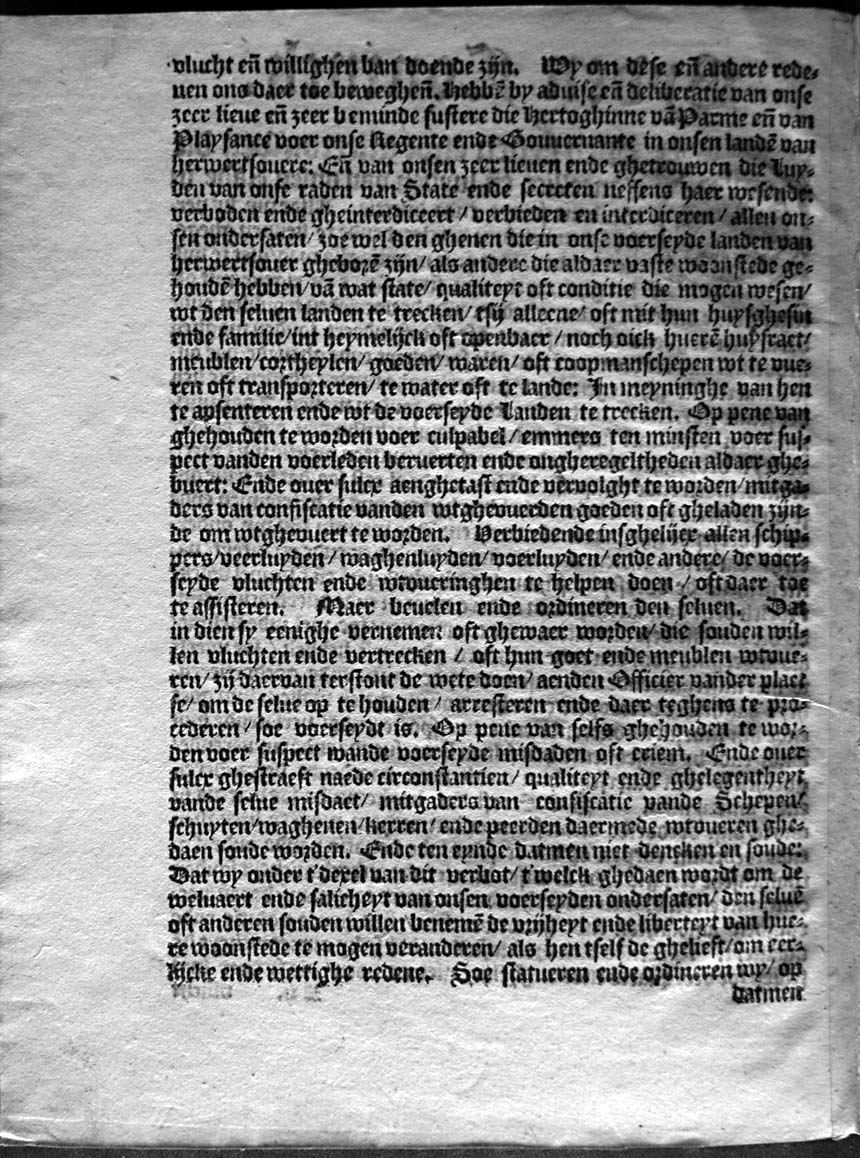 vlucht eñ willighen van doende zijn. Wy om dese eñ andere rede-
nen ons daer toe bewegheñ. Hebbē by aduise eñ deliberatie van onse
zeer lieue eñ zeer beminde sustere die Hertoghinne vā Parme eñ van
Playsance voer onse Regente ende Gouuernante in onsen landē van
herwertsouere: Eñ van onsen zeer lieuen ende ghetrouwen die Luy-
den van onse raden van State ende secreten neffens haer wesende:
verboden ende gheinterdiceert / verbieden en interdiceren / allen on-
sen ondersaten/ zoe wel den ghenen die in onse voerseyde landen van
herwertsouer gheborē zijn/ als andere die aldaer vaste woonstede ge-
houdē hebben/ vā wat state/ qualiteyt oft conditie die mogen wesen/
wt den seluen landen te trecken/ tsij alleene/ oft mit hun huysghesin
ende familie/int heymelijck oft openbaer / noch oick huerē huysraet/
meublen/cortheylen/ goeden/ waren/ oft coopmanschepen wt te vue-
ren oft transporteren/ te water oft te lande: In meyninghe van hen
te absenteren ende wt de voerseyde Landen te trecken. Op pene van
ghehouden te worden voer culpabel / emmers ten minsten voer sus-
pect vanden voerleden beruerten ende ongheregeltheden aldaer ghe-
buert: Ende ouer sulcx aenghetast ende vervolght te worden/mitga-
ders van confiscatie vanden wtghevuerden goeden oft gheladen zijn-
de om wtghevuert te worden. Verbiedende insghelijcx allen schip-
pers/veerluyden/ waghenluyden/voerluyden/ ende andere/ de voer-
seyde vluchten ende wtvueringhen te helpen doen / oft daer toe
te assisteren. Maer beuelen ende ordineren den seluen. Dat
in dien sy eenighe vernemen oft ghewaer worden/ die souden wil-
len vluchten ende vertrecken / oft hun goet ende meublen wtvue-
ren/ zij daervan terstont de wete doen/ aenden Officier vander plaet
se/ om de selue op te houden / arresteren ende daer teghens te pro-
cederen / soe voerseydt is. Op pene van selfs ghehouden te wor-
den voer suspect vande voerseyde misdaden oft criem. Ende ouer
sulcx ghestraeft naede circonstantien/ qualiteyt ende ghelegentheyt
vande selue misdaet/ mitgaders van confiscatie vande Schepen/
schuyten/waghenen/kerren/ ende peerden daermede wtvueren ghe-
daen soude worden. Ende ten eynde datmen niet dencken en soude:
Dat wy onder t'dexel van dit verbot/ t'welck ghedaen wordt om de
weluaert ende salicheyt van onsen voerseyden ondersaten/ den seluē
oft anderen souden willen benemē de vrijheyt ende liberteyt van hue-
re woonstede te mogen veranderen/ als hen tself de ghelieft/om eer-
lijcke ende wettighe redene. Soe statueren ende ordineren wy/ op
datmen